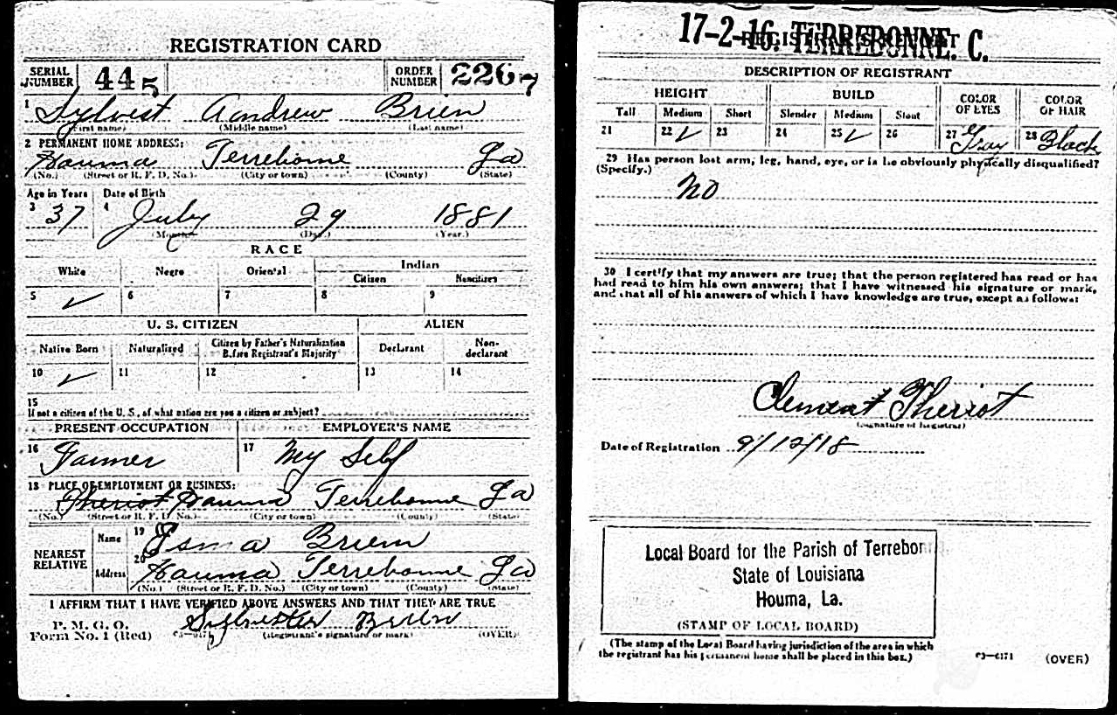 REGISTRATION CARD
SERIAL NUMBER 445 ORDER NUMBER 2267
1 Sylvest Andrew Brien
(First name) (Middle name) (Last name)
2 PERMANENT HOME ADDRESS:
Hauma Terrebonne La
(No.) (Street or R. F. D. No.) (City or town) (County) (State)
Age in Years Date of Birth
3 37 4 July 29 1881
(Month.) (Day.) (Year.)
RACE
White Negro Oriental Indian
Citizen Noncitizen
5 ✓ 6 7 8 9
U. S. CITIZEN ALIEN
Native Born Naturalized Citizen by Father's Naturalization Before Registrant's Majority Declarant Non-declarant
10 ✓ 11 12 13 14
15
If not a citizen of the U. S., of what nation are you a citizen or subject?
PRESENT OCCUPATION EMPLOYER'S NAME
16 Farmer 17 My Self
18 PLACE OF EMPLOYMENT OR BUSINESS:
Theriot Hauma Terrebonne La
(No.) (Street or R. F. D. No.) (City or town) (County) (State)
NEAREST RELATIVE
Name 19 Esma Brien
Address 20 Hauma Terrebonne La
(No.) (Street or R. F. D. No.) (City or town) (County) (State)
I AFFIRM THAT I HAVE VERIFIED ABOVE ANSWERS AND THAT THEY ARE TRUE
P. M. G. O.
Form No. 1 (Red) Sylvester Brien
(Registrant's signature or mark) (OVER)
17-2-16. TERREBONNE. C.
DESCRIPTION OF REGISTRANT
HEIGHT BUILD COLOR OF EYES COLOR OF HAIR
Tall Medium Short Slender Medium Stout
21 22 ✓ 23 24 25 ✓ 26 27 Gray 28 Black
29 Has person lost arm, leg, hand, eye, or is he obviously physically disqualified?
(Specify.) No
30 I certify that my answers are true; that the person registered has read or has
had read to him his own answers; that I have witnessed his signature or mark,
and that all of his answers of which I have knowledge are true, except as follows:
Clement Theriot
(Signature of Registrar)
Date of Registration 9/12/18
Local Board for the Parish of Terrebon
State of Louisiana
Houma, La.
(STAMP OF LOCAL BOARD)
(The stamp of the Local Board having jurisdiction of the area in which
the registrant has his permanent home shall be placed in this box.)
03—6171 (OVER)